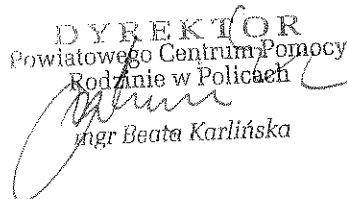 DYREKTOR
Powiatowego Centrum Pomocy
Rodzinie w Policach
mgr Beata Karlińska